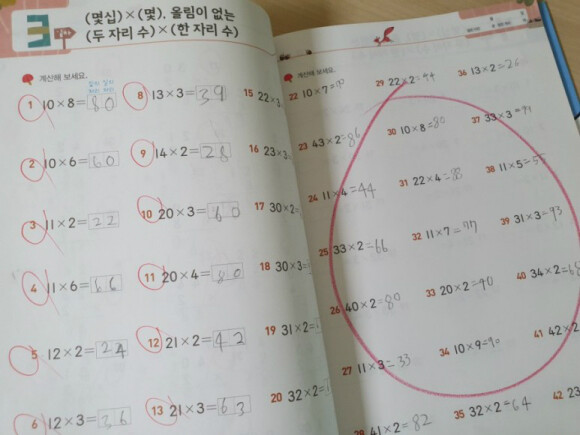 (몇십)×(몇), 올림이 없는
(두 자리 수)×(한 자리 수)
계산해 보세요.
1 10×8=80
2 10×6=60
3 11×2=22
4 11×6=66
5 12×2=24
6 12×3=36
8 13×3=39
9 14×2=28
10 20×3=60
11 20×4=80
12 21×2=42
13 21×3=63
15 22×3
16 23×3
17 30×2=
18 30×3=
19 31×2=
20 32×2=
계산해 보세요.
22 10×7=
23 43×2=86
24 11×4=44
25 33×2=66
26 40×2=80
27 11×3=33
28 41×2=82
29 22×2=44
30 10×8=80
31 22×4=88
32 11×7=77
33 20×2=40
34 10×9=9
35 32×2=64
36 13×2=26
37 33×3=99
38 11×5=55
39 31×3=93
40 34×2=
41 42×2
42 23